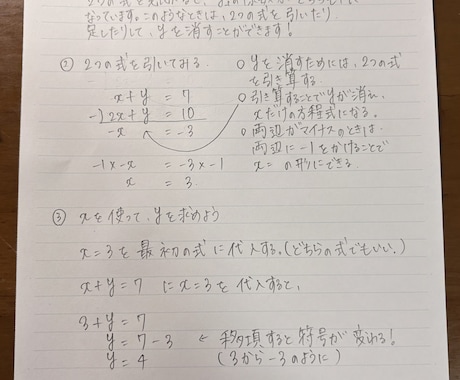 なっています。このようなときは、2つの式を引いたり
足したりして、yを消すことができます!
② 2つの式を引いてみる
x + y = 7
-) 2x + y = 10
-x = -3
-1 x -x = -3 x -1
x = 3.
○ yを消すためには、2つの式
を引き算する
○ 引き算することでyが消え、
xだけの方程式になる。
○ 両辺がマイナスのときは、
両辺に-1をかけることで
x= の形にできる
③ xを使って、yを求めよう
x=3を最初の式に代入する。(どちらの式でもいい。)
x+y=7 にx=3を代入すると、
3+y = 7
y = 7-3 ← 移項すると符号が変わる!
y = 4 (3から-3のように)